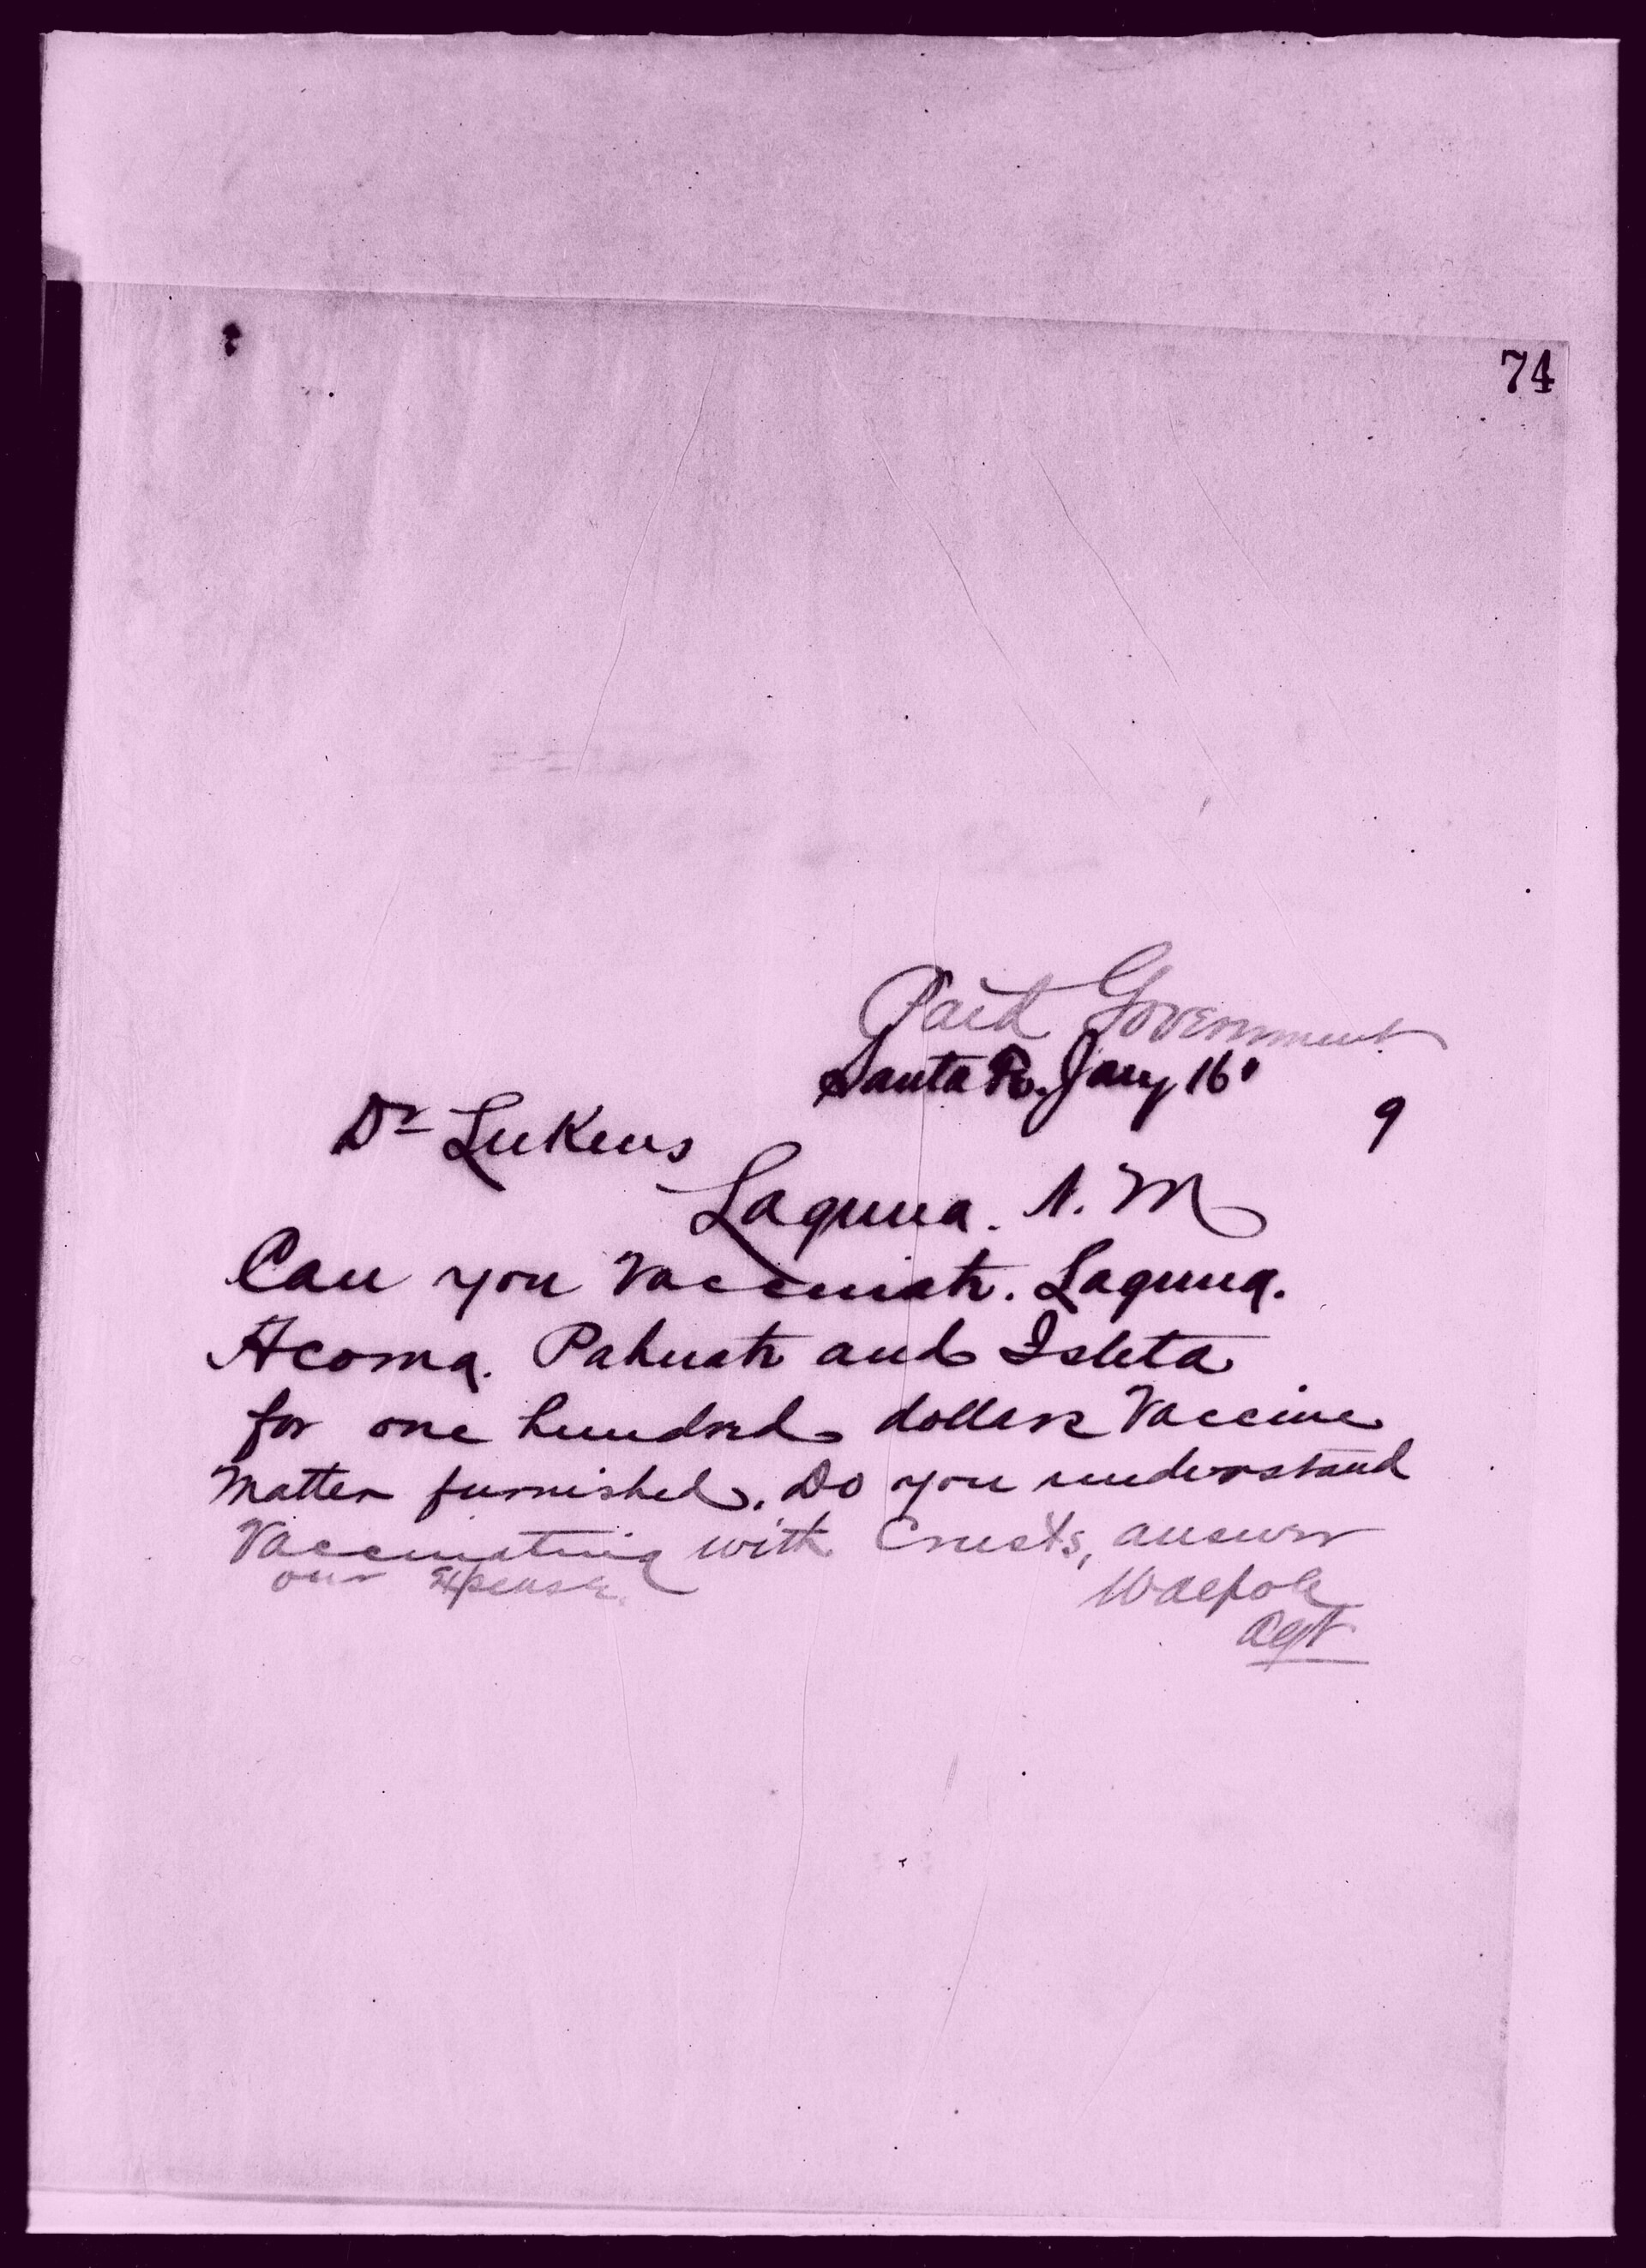 74
Paid Government
Santa Fe. Jany 16
9
Dr Lukens
Laguna. N. M
Can you Vaccinate. Laguna.
Acoma. Pahuate and Isleta
for one hundred dollars Vaccine
Matter furnished. Do you understand
Vaccinating with Crusts, answer
our Expense.
Walpole
Agt